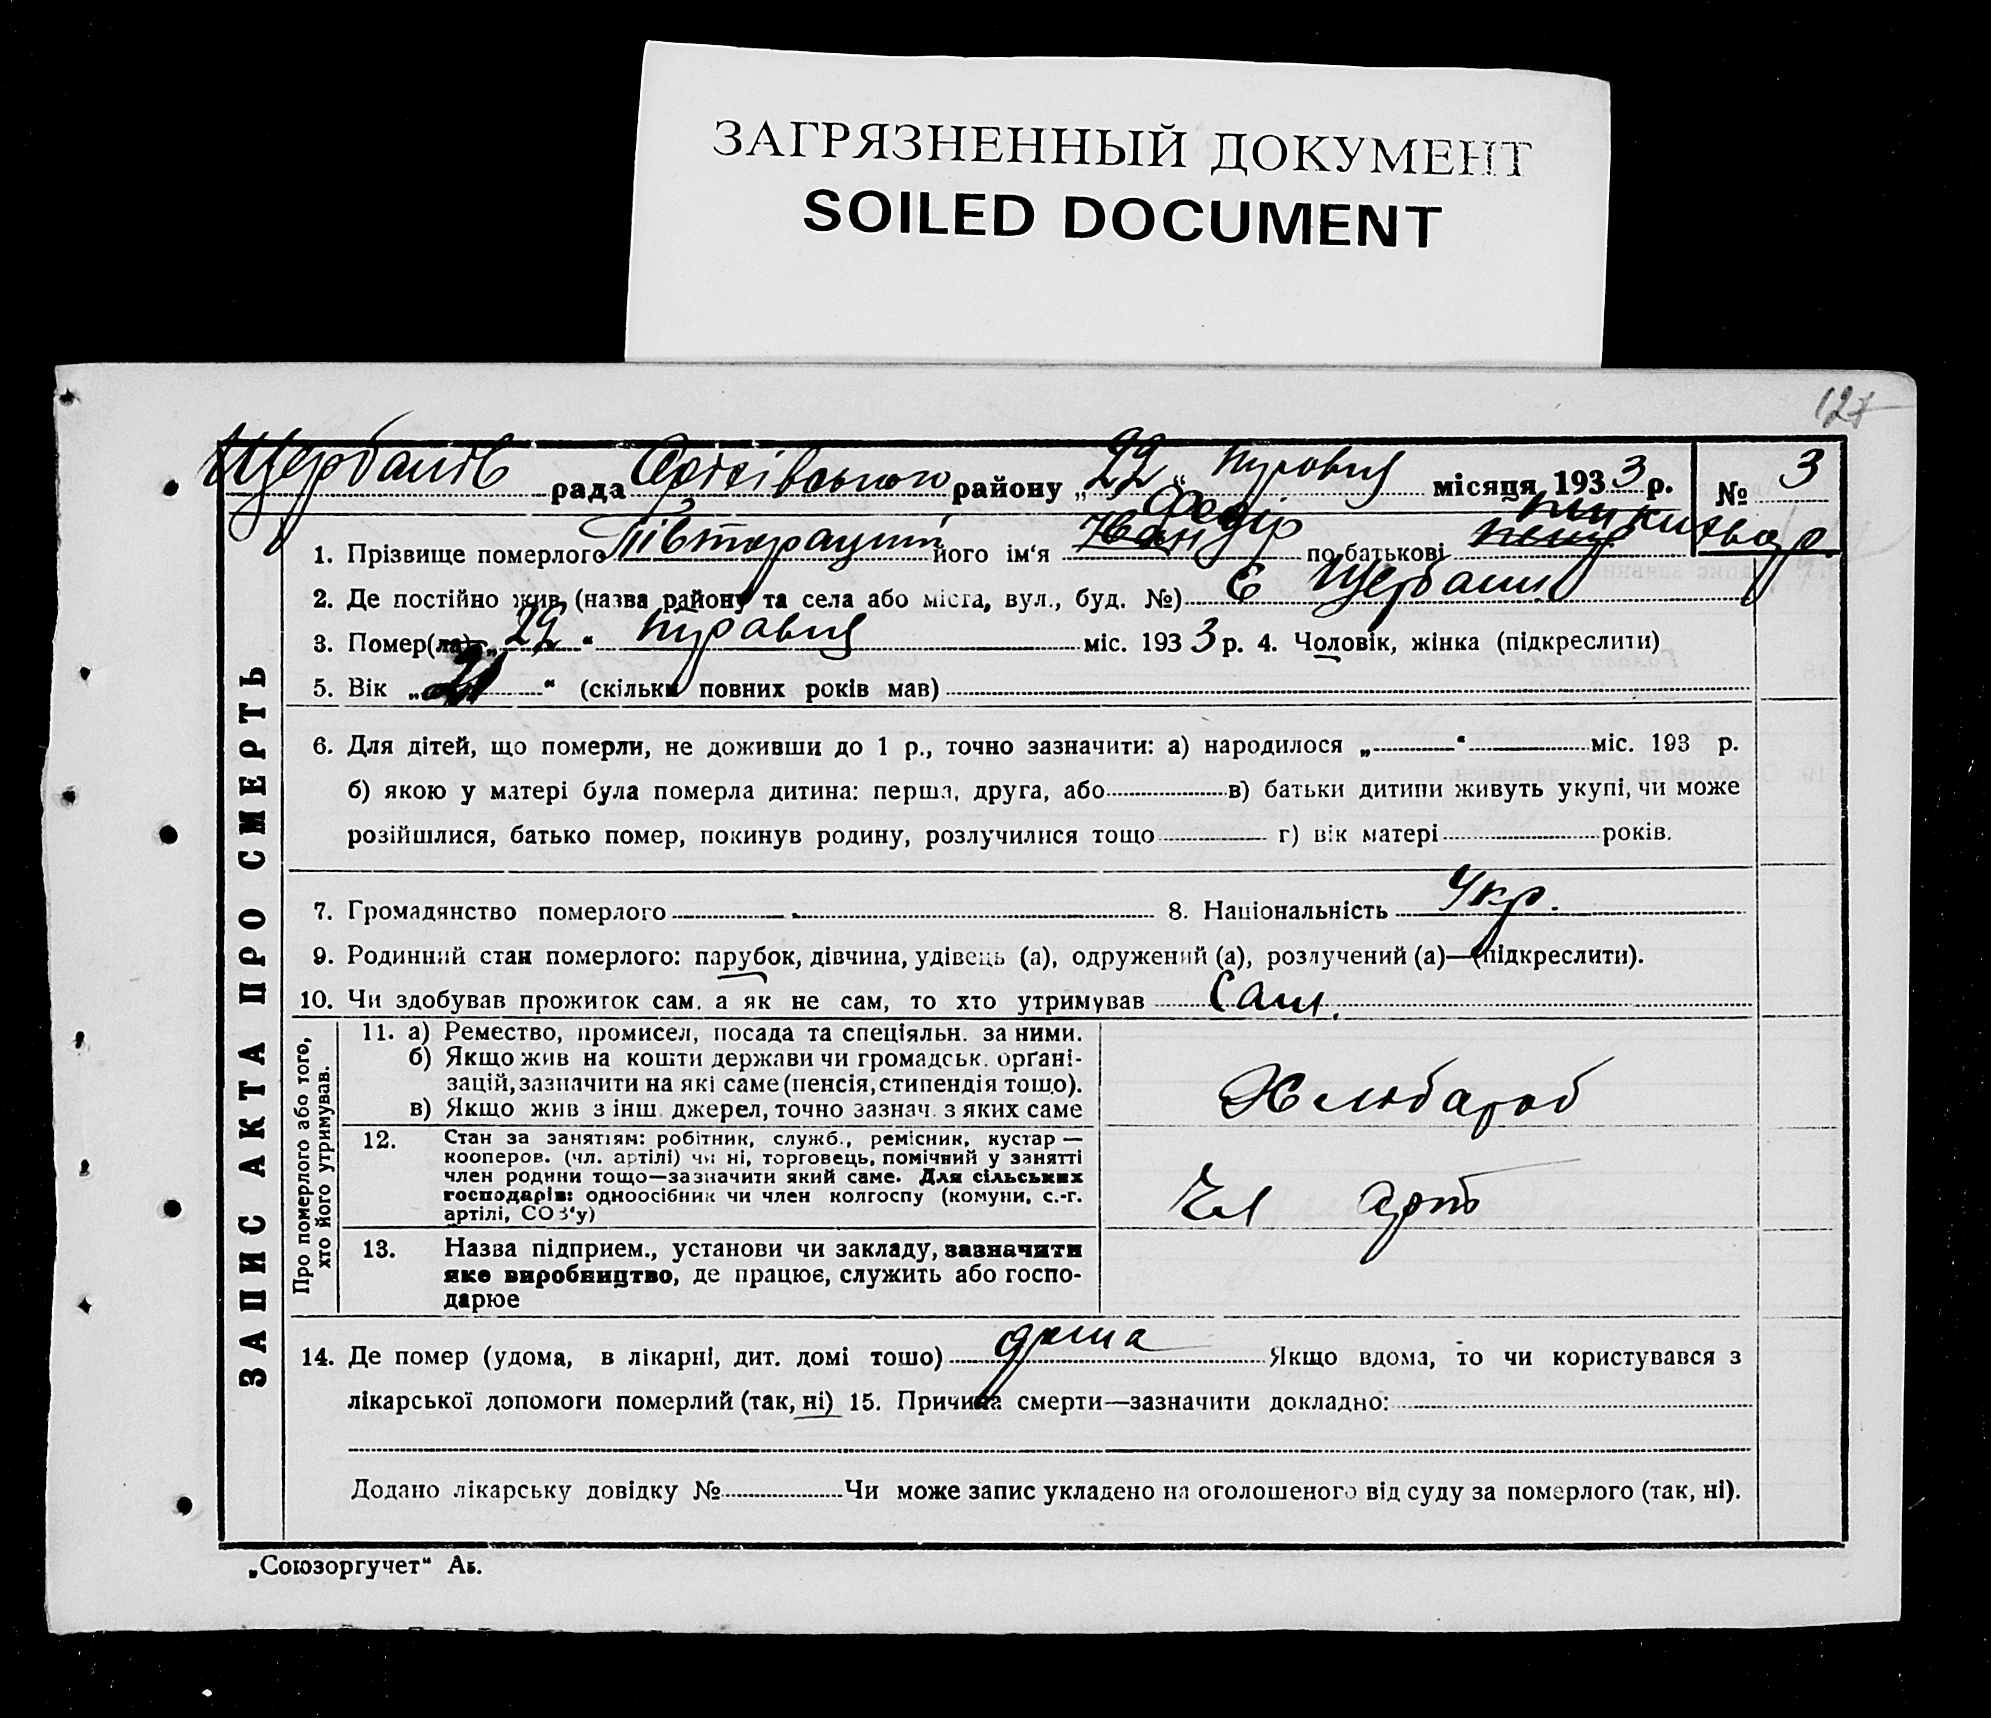 ЗАГРЯЗНЕННЫЙ ДОКУМЕНТ
SOILED DOCUMENT
127
рада району „22“ місяця 1933 р. № 3
1. Прізвище померлого його ім‘я Иван Федір по батькові
2. Де постійно жив (назва району та села або міста, вул., буд. №)
3. Помер(ла) „22“ міс. 1933 р. 4. Чоловік, жінка (підкреслити)
5. Вік „21“ (скільки повних років мав)
6. Для дітей, що померли, не доживши до 1 р., точно зазначити: а) народилося „ “ міс. 193 р.
б) якою у матері була померла дитина: перша, друга, або в) батьки дитини живуть укупі, чи може
розійшлися, батько помер, покинув родину, розлучилися тощо г) вік матері років.
7. Громадянство померлого - 8. Національність Укр.
9. Родинний стан померлого: парубок, дівчина, удівець (а), одружений (а), розлучений (а)—(підкреслити).
10. Чи здобував прожиток сам. а як не сам, то хто утримував Сам.
ЗАПИС АКТА ПРО СМЕРТЬ
Про померлого або того,
хто його утримував.
11. а) Ремество, промисел, посада та спеціяльн. за ними.
б) Якщо жив на кошти держави чи громадськ. орґані-
зацій, зазначити на які саме (пенсія, стипендія тощо).
в) Якщо жив з інш. джерел, точно зазнач. з яких саме
Хлібароб
12. Стан за заняттям: робітник, служб., ремісник, кустар —
кооперов. (чл. артілі) чи ні, торговець, помічний у занятті
член родини тощо—зазначити який саме. Для сільських
господарів: одноосібник чи член колгоспу (комуни, с.-г.
артілі, СОЗ‘у)
Чл арт
13. Назва підприєм., установи чи закладу, зазначити
яке виробництво, де працює, служить або госпо-
дарює
14. Де помер (удома, в лікарні, дит. домі тощо) дома Якщо вдома, то чи користувався з
лікарської допомоги померлий (так, ні) 15. Причина смерти—зазначити докладно:
Додано лікарську довідку № Чи може запис укладено на оголошеного від суду за померлого (так, ні).
„Союзоргучет“ Аб.